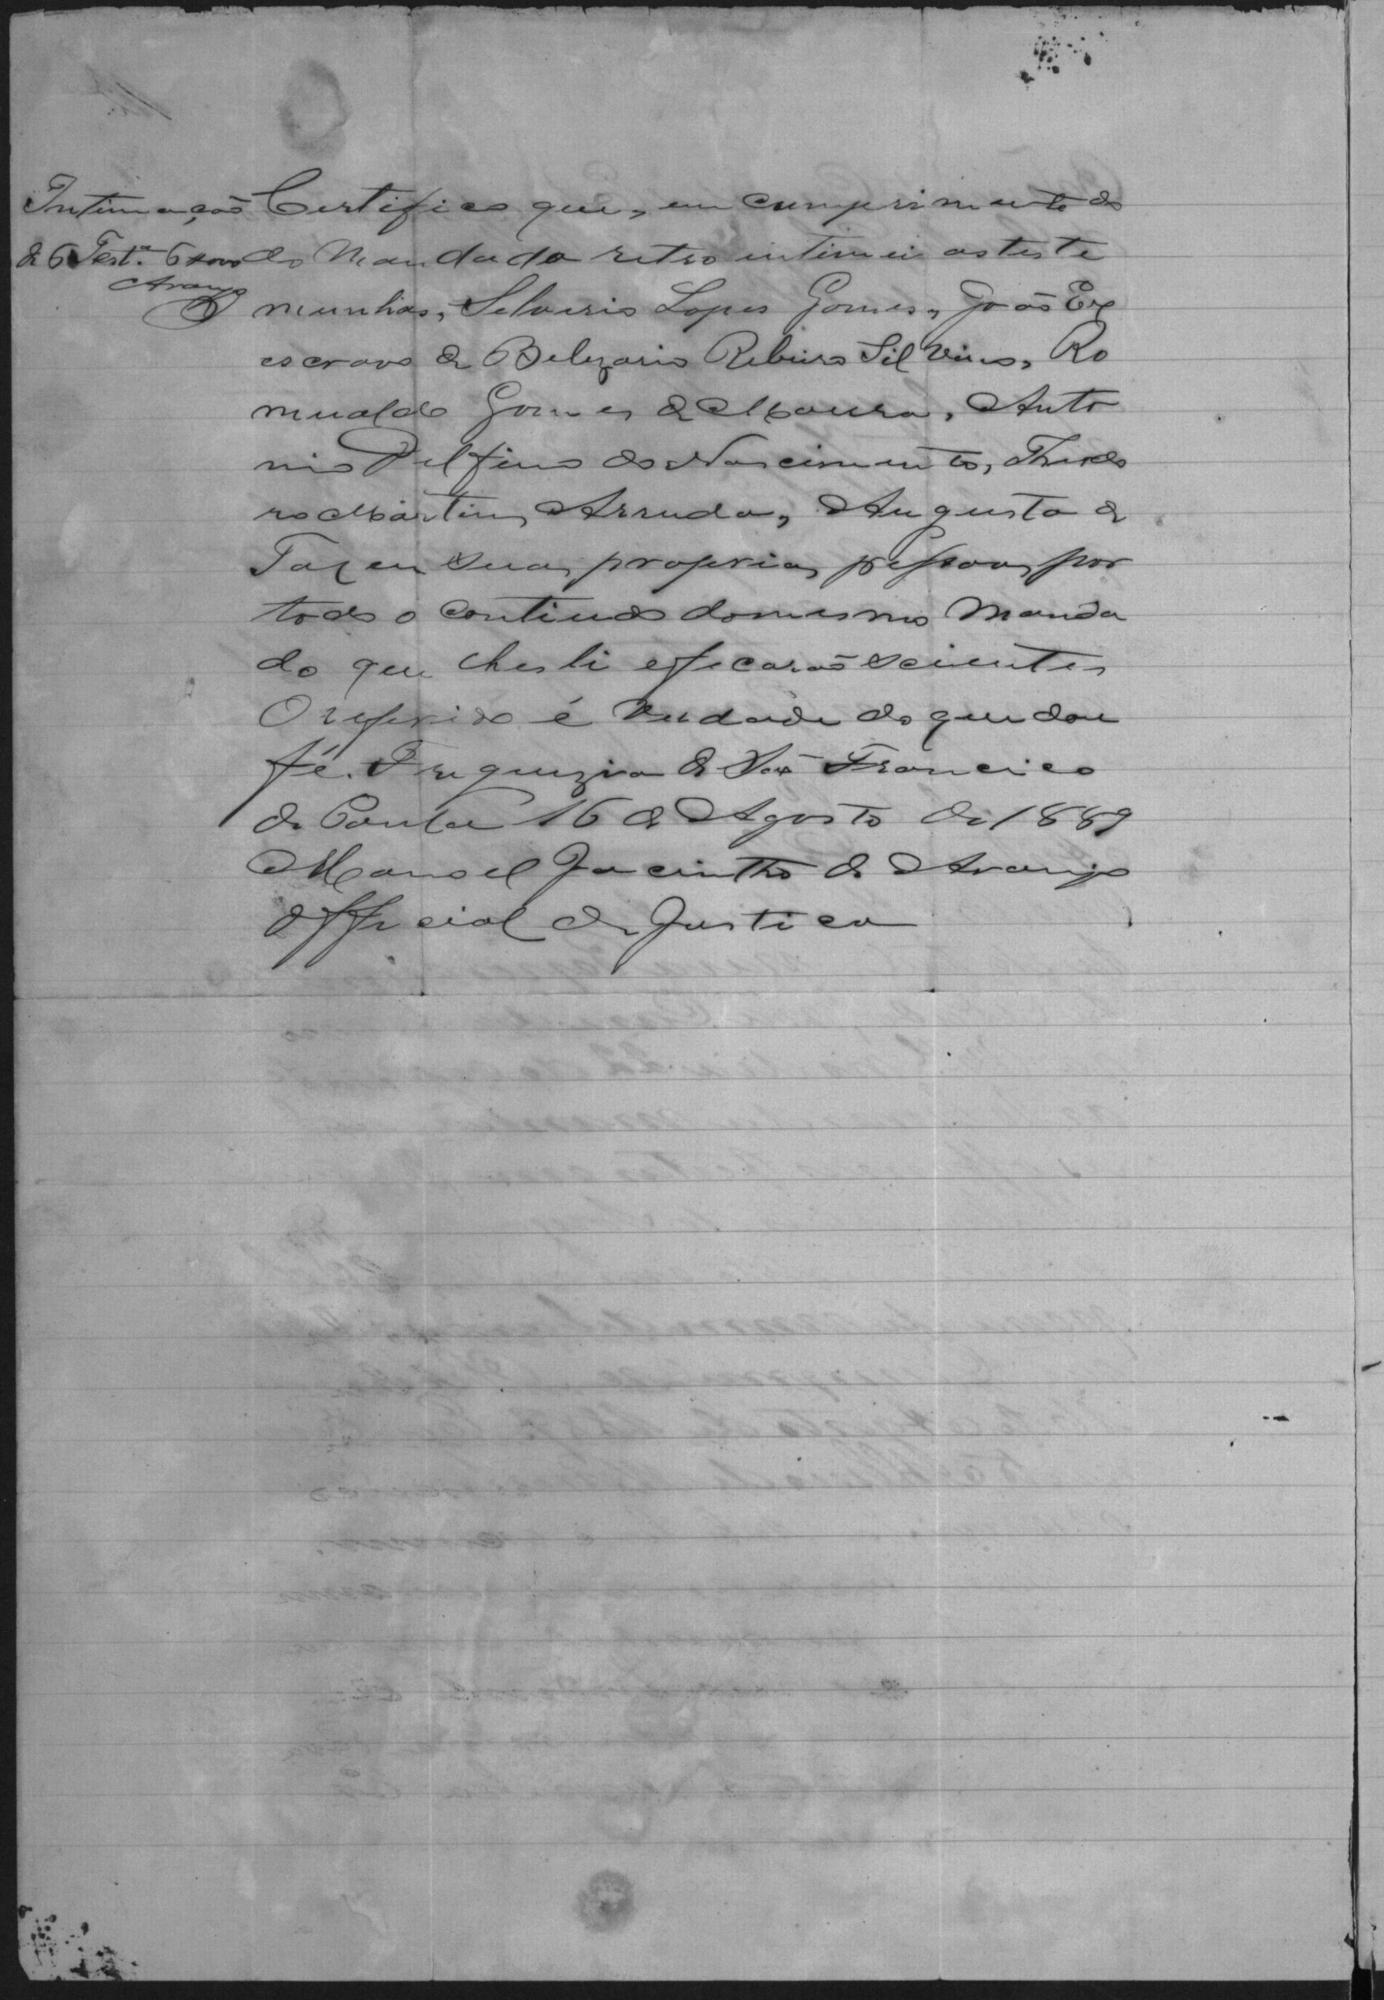 Intimação
de 6 Test.ª 6
Araujo
Certifico que, em cumprimento do
do Mandado retro intimei as teste
munhas, Silverio Lopes Gomes, João Ex
escravo de Belizario Ribeiro Silvino, Ro
mualdo Gomes de Moura, Anto
nio Delfino do Nascimento, Theodo
ro Martins Arruda, Augusto de
Tal em suas proprias pessoas por
todo o contiudo do mesmo Manda
do que lhes li e ficarão scientes
O referido é verdade do que dou
fé. Freguezia de São Francisco
de Paula 16 de Agosto de 1889
Manoel Jacintho de Araujo
Official de Justica